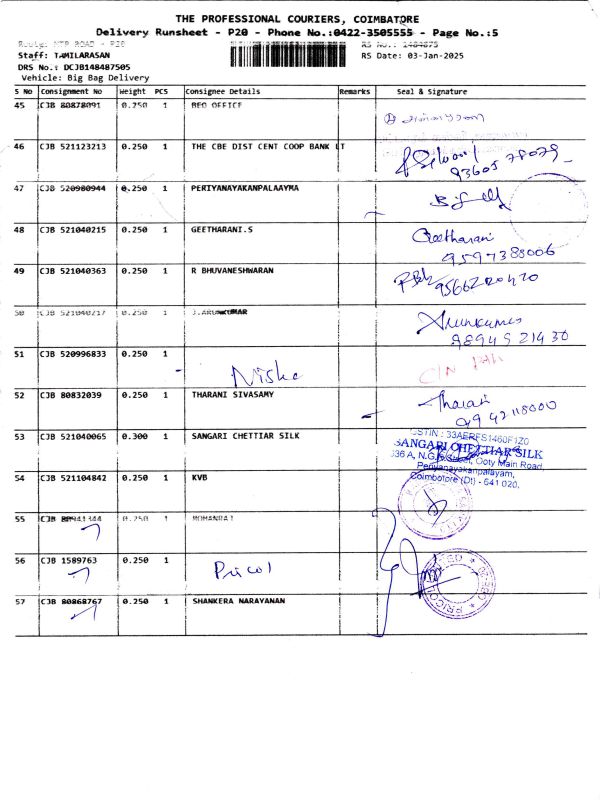 THE PROFESSIONAL COURIERS, COIMBATORE
Delivery Runsheet - P20 - Phone No.:0422-3505555 - Page No.:5
Routg: MTP ROAD - P20
RS No.: 1484875
Staff: TAMILARASAN
RS Date: 03-Jan-2025
DRS No.: DCJB148487505
Vehicle: Big Bag Delivery
S No Consignment No Weight PCS Consignee Details Remarks Seal & Signature
45 CJB 80878091 0.250 1 BEO OFFICE
46 CJB 521123213 0.250 1 THE CBE DIST CENT COOP BANK LT
93605 78079
47 CJB 520980944 0.250 1 PERIYANAYAKANPALAAYMA
48 CJB 521040215 0.250 1 GEETHARANI.S Geetharani
9597388006
49 CJB 521040363 0.250 1 R BHUVANESHWARAN
50 CJB 521040217 0.250 1 J.ARUNKUMAR Arunkumar
98949 21430
51 CJB 520996833 0.250 1
Nisha
52 CJB 80832039 0.250 1 THARANI SIVASAMY Tharani
99 42118000
53 CJB 521040065 0.300 1 SANGARI CHETTIAR SILK
GSTIN : 33AERFS1460F1Z0
SANGARI CHETTIAR SILK
336 A, N.G.R. Street, Ooty Main Road,
Periyanayakanpalayam,
Coimbatore (Dt) - 641 020.
54 CJB 521104842 0.250 1 KVB
55 CJB 80941344 0.250 1 MOHANRAJ
56 CJB 1589763 0.250 1 Pricol
57 CJB 80868767 0.250 1 SHANKERA NARAYANAN